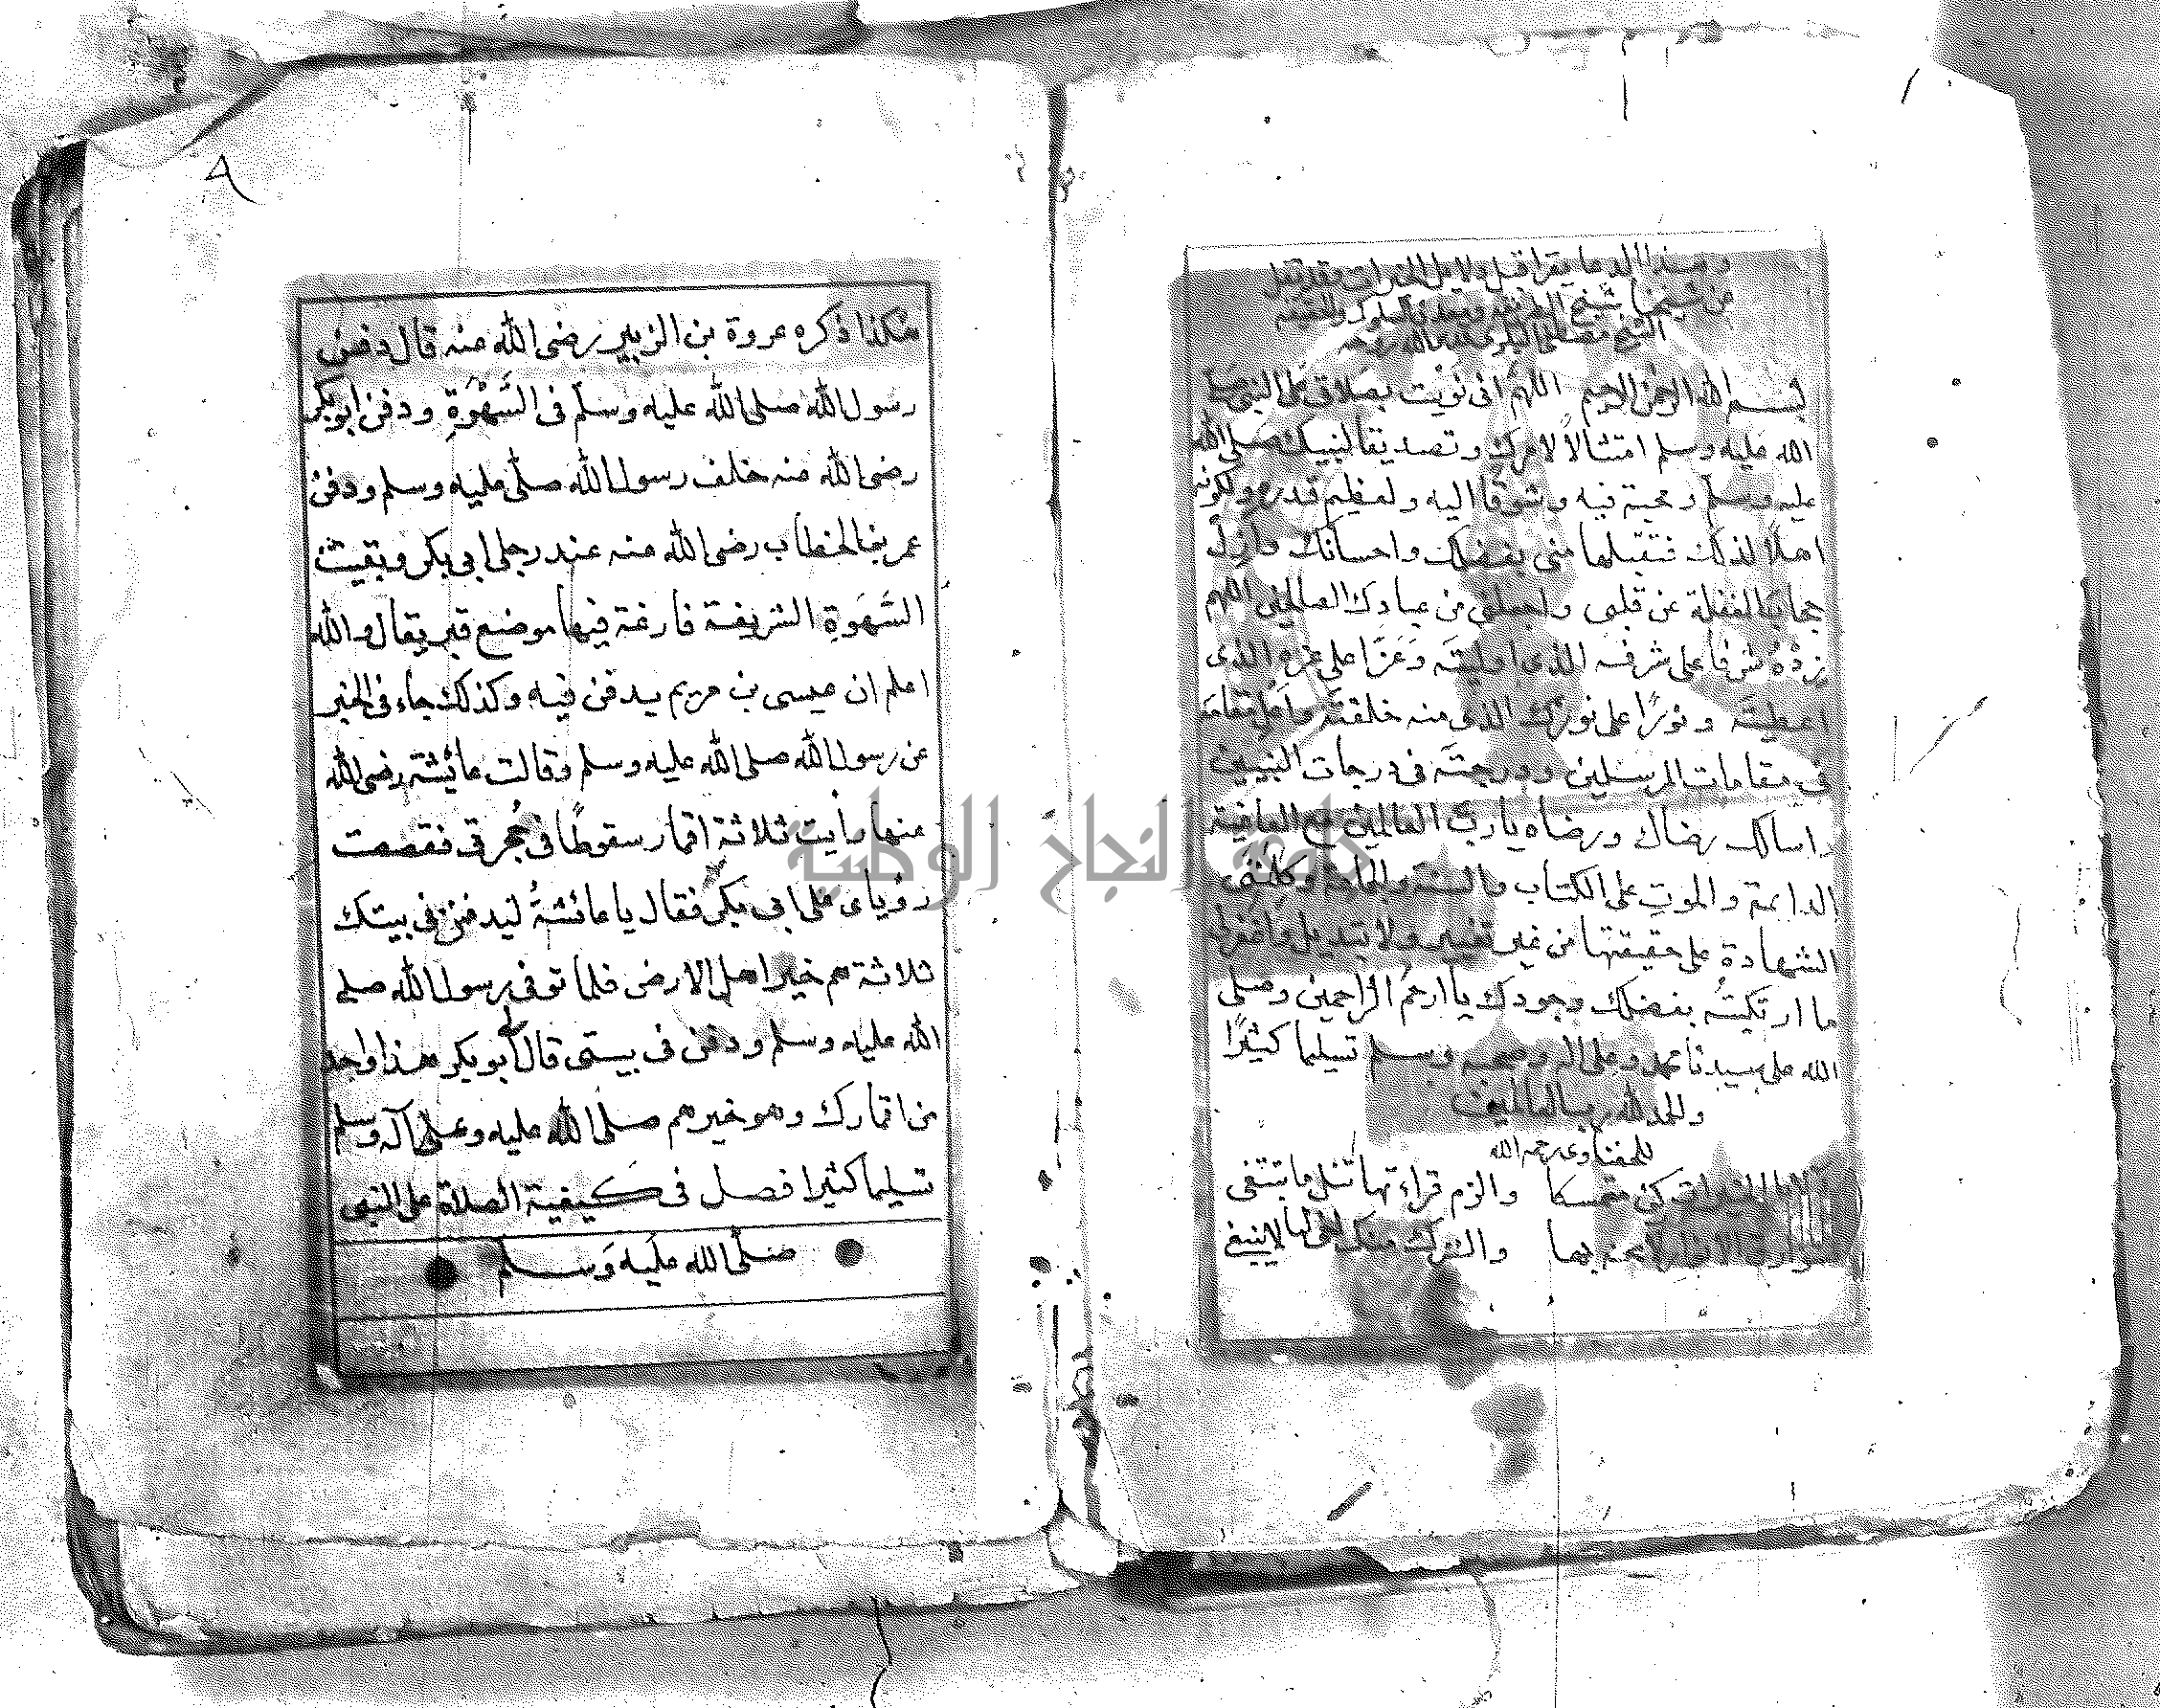 وهذا الدعا يقرا قبل دلايل الخيرات وقد نقل
من شيخنا شيخ الطريقة ومعدن السلوك والحقيقة
الشيخ مصطفى البكرى
بسم الله الرحمن الرحيم اللهم انى نويت بصلاتى على النبى صلى
الله عليه وسلم امتثالاً لامرك وتصديقا لنبيك صلى الله
عليه وسلم ومحبة فيه وشوقا اليه ولعظيم قدره ولكونه
اهلاً لذلك فتقبلها منى بفضلك واحسانك وازل
حجاب الغفلة عن قلبى واجعلنى من عبادك الصالحين اللهم
زدْهُ شرفا على شرفه الذى اوليته وَعزًا على عزه الذى
اعطيته ونورًا على نوره الذى منه خلقته واعل مقامه
فى مقامات المرسلين ودرجته فى درجات النبيين
واسالك رضاك ورضاه يا رب العالمين مع العافية
الدايمة والموتِ على الكتاب والسنة والجماعة وكلمتى
الشهادة على حقيقتها من غير تغيير ولا تبديل واغفر لى
ما ارتكبته بفضلك وجودك يا ارحم الراحمين وصلى
الله على سيدنا محمد وعلى اله وصحبه وسلم تسليما كثيرًا
والحمد لله رب العالمين
للحفناوى رحمه الله
كن متمسكا والزم قراءتها تنل ما تبتغى
والترك منك لها لا ينبغى
٨
هكذا ذكره عروة بن الزبير رضى الله عنه قال دفن
رسول الله صلى الله عليه وسلم فى السَّهْوَةِ ودفن ابو بكر
رضى الله عنه خلف رسول الله صلى عليه وسلم ودفن
عمر بن الخطاب رضى الله عنه عند رجلى ابى بكر وبقيت
السَّهوَةِ الشريفة فارغة فيها موضع قبر يقال والله
اعلم ان عيسى بن مريم يدفن فيه وكذلك جاء فى الخبر
عن رسول الله صلى الله عليه وسلم وقالت عائشة رضى الله
عنها رأيت ثلاثة اقمار سقوطًا فى حُجرتى فقصصت
رؤياى على ابى بكر فقال يا عائشةُ ليدفنن فى بيتك
ثلاثة هم خير اهل الارض فلما توفى رسول الله صلى
الله عليه وسلم ودفن فى بيتى قال لى ابو بكر هذا واحد
من اقمارك وهو خيرهم صلى الله عليه وعلى آله وسلم
تسليما كثيرا فصل فى كيفية الصلاة على النبى
صلى الله عليه وَسلم
جامعة النجاح الوطنية